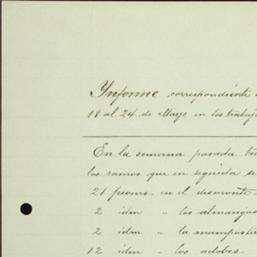 Informe correspondiente
18 al 24 de Marzo en los trabaj
En la semana pasada
los ramos que en seguida se
21 peones en el desmonte
2 idm " los
2 idm " la
12 idm " los adobes